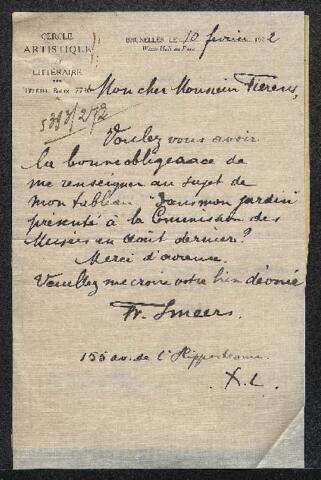 CERCLE
ARTISTIQUE
ET
LITTÉRAIRE
BRUXELLES LE 10 février 1922
Waux-Hall du Parc
5397/2/72
Mon cher Monsieur Fierens,
Voulez vous avoir
la bonne obligeance de
me renseigner au sujet de
mon tableau "Dans mon jardin"
présenté à la Commission des
Musées en août dernier?
Merci d'avance.
Veuillez me croire votre bien dévoué
Fr. Smeers.
155 av. de l'Hippodrome
X. L.